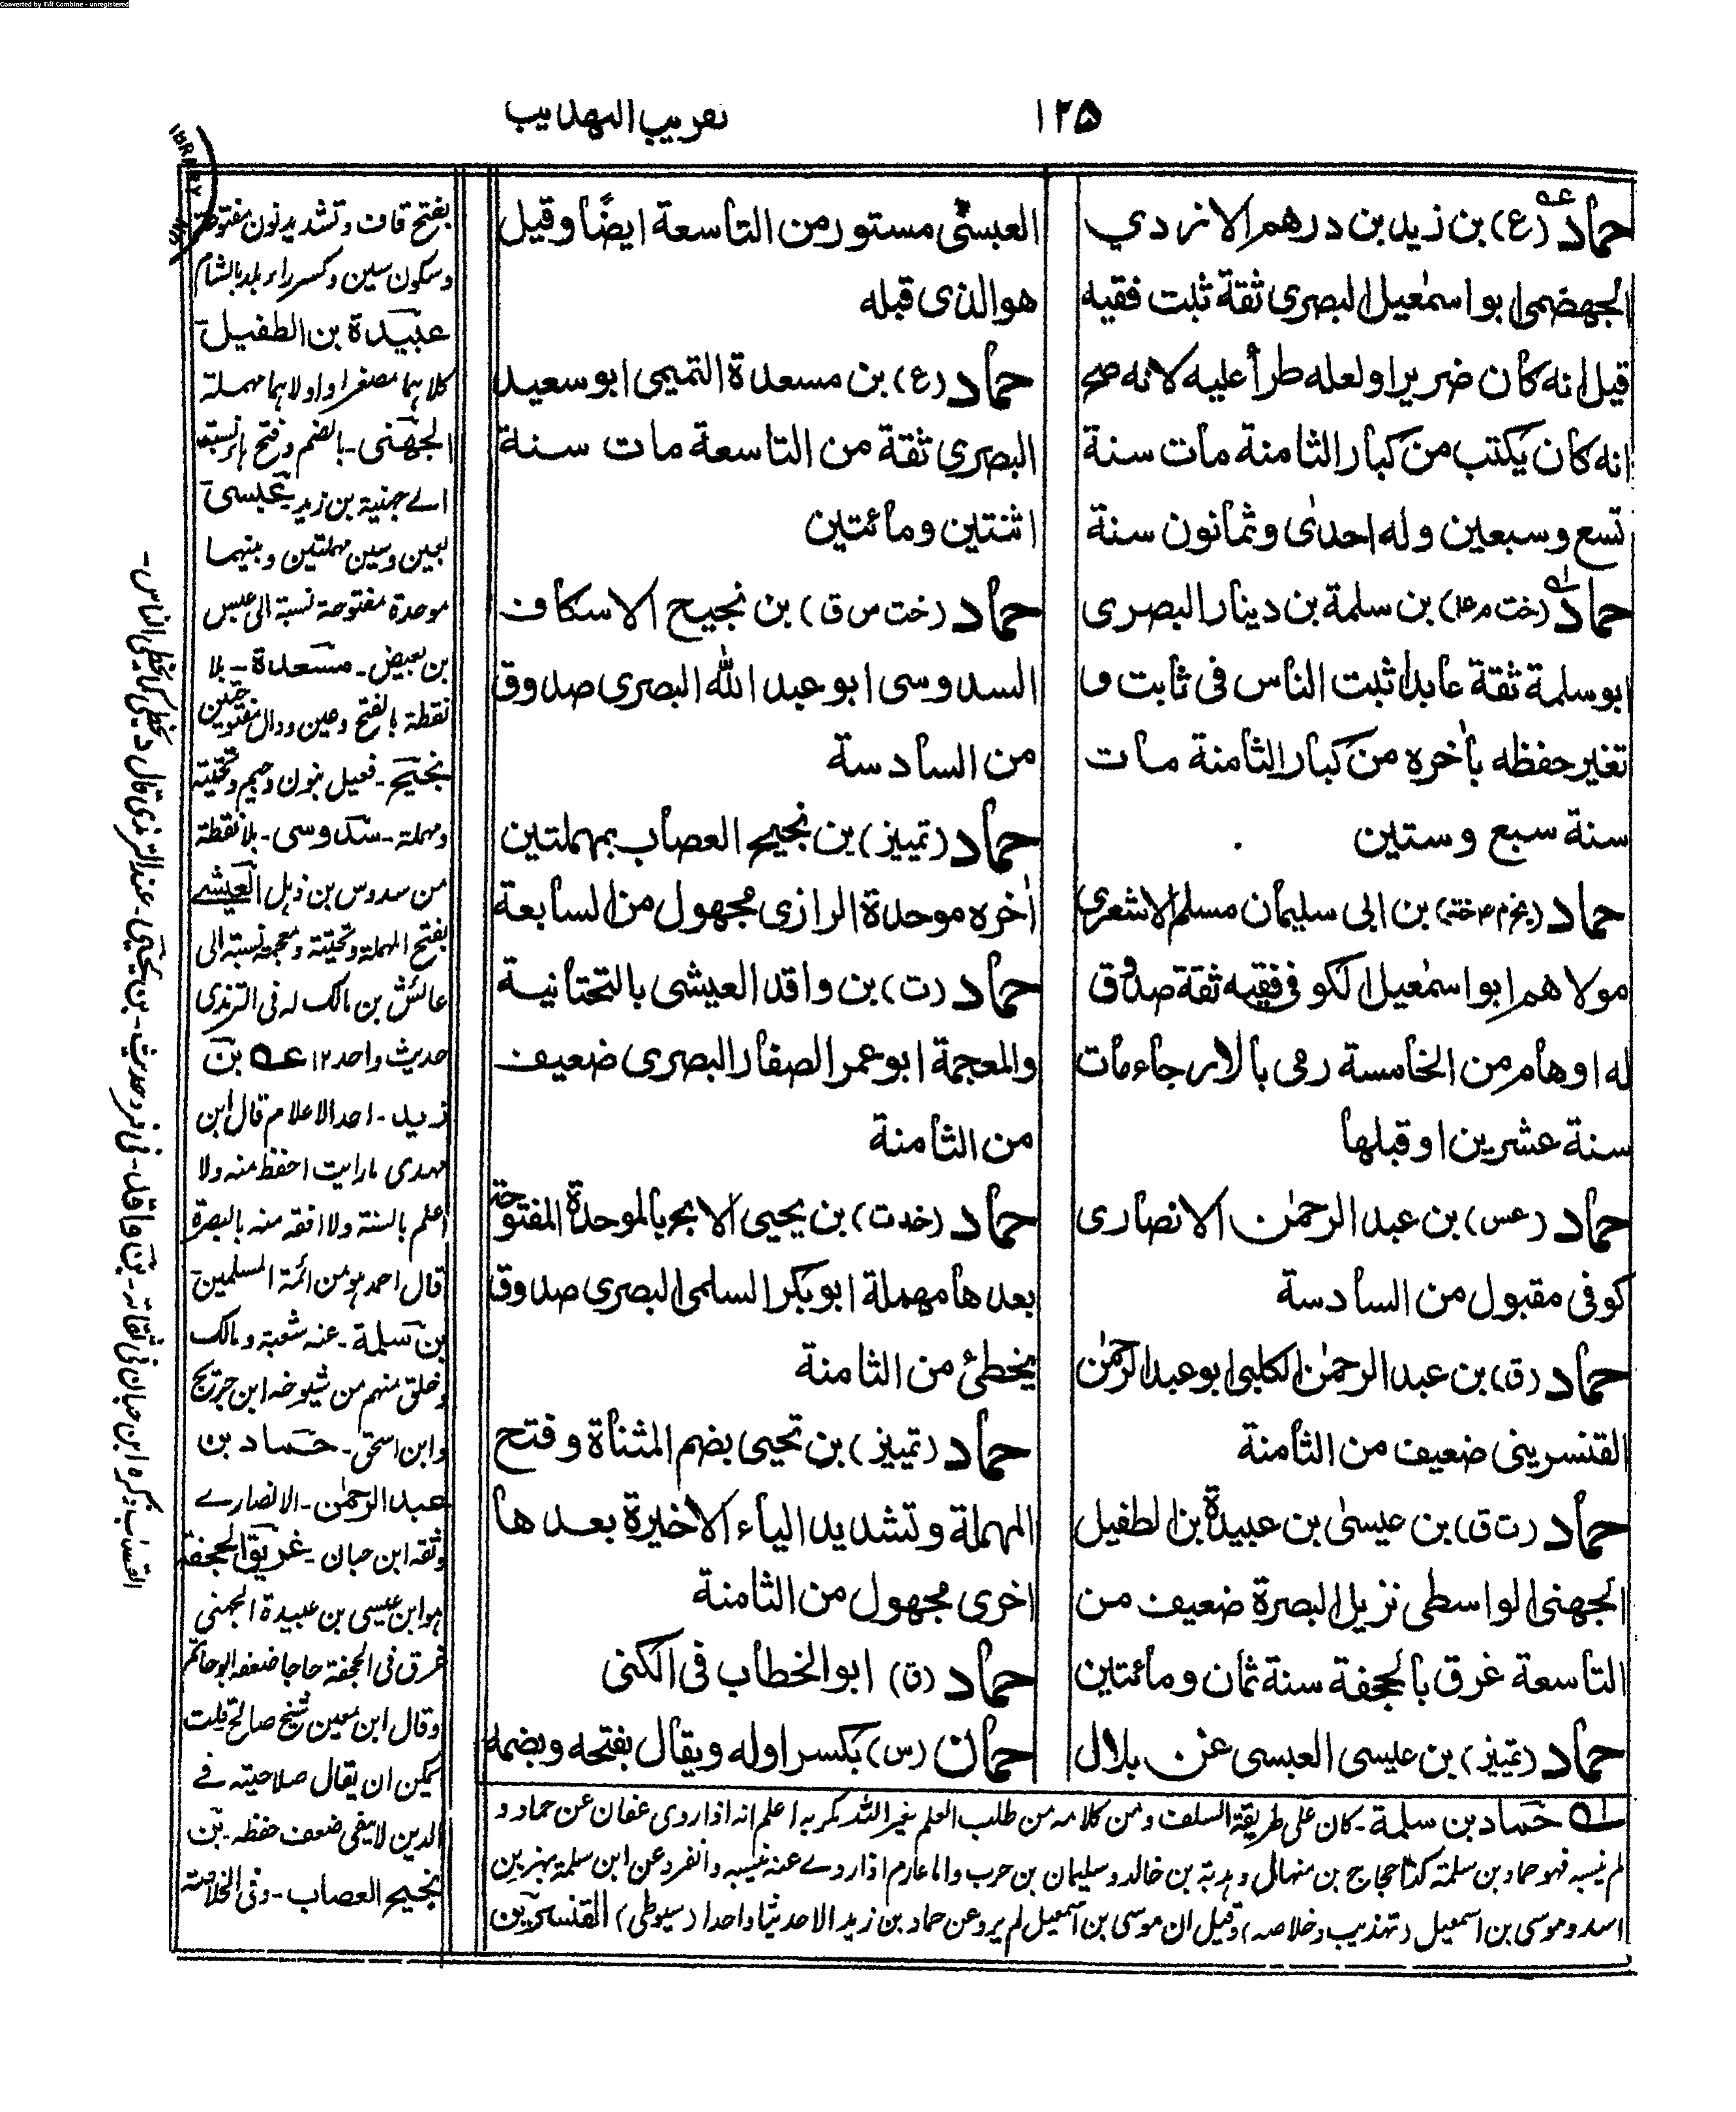 Converted by Tiff Combine - unregistered
١٢٥
تقريب التهذيب
حماد (ع) بن زيد بن درهم الازدي
الجهضمى ابو اسمٰعيل البصرى ثقة ثبت فقيه
قيل انه كان ضريرا ولعله طرأ عليه لانه صح
انه كان يكتب من كبار الثامنة مات سنة
تسع وسبعين وله احدىٰ وثمانون سنة
حماد (خت م عه) بن سلمة بن دينار البصرى
ابو سلمة ثقة عابد اثبت الناس فى ثابت و
تغير حفظه بأخره من كبار الثامنة مات
سنة سبع وستين
حماد (بخ م عه) بن ابى سليمان مسلم الاشعرى
مولاهم ابو اسمٰعيل الكوفى فقيه ثقة صدوق
له اوهام من الخامسة رمى بالارجاء مات
سنة عشرين او قبلها
حماد (عس) بن عبد الرحمٰن الانصارى
كوفى مقبول من السادسة
حماد (ق) بن عبد الرحمٰن الكلبى ابو عبد الرحمٰن
القنسرينى ضعيف من الثامنة
حماد (ت ق) بن عيسىٰ بن عبيدة بن الطفيل
الجهنى الواسطى نزيل البصرة ضعيف من
التاسعة غرق بالجحفة سنة ثمان ومائتين
حماد (تمييز) بن عيسى العبسى عن بلال
العبسى مستور من التاسعة ايضًا وقيل
هو الذى قبله
حماد (ع) بن مسعدة التميمى ابو سعيد
البصرى ثقة من التاسعة مات سنة
اثنتين ومائتين
حماد (خت س ق) بن نجيح الاسكاف
السدوسى ابو عبد الله البصرى صدوق
من السادسة
حماد (تمييز) بن نجيح العصاب بمهملتين
اٰخره موحدة الرازى مجهول من السابعة
حماد (ت) بن واقد العيشى بالتحتانية
والمعجمة ابو عمر الصفار البصرى ضعيف
من الثامنة
حماد (خد ت) بن يحيى الابح بالموحدة المفتوحة
بعدها مهملة ابو بكر السلمى البصرى صدوق
يخطئ من الثامنة
حماد (تمييز) بن تحيى بضم المثناة وفتح
المهملة وتشديد الياء الاخيرة بعدها
اخرى مجهول من الثامنة
حماد (ق) ابو الخطاب فى الكنى
حمان (س) بكسر اوله ويقال بفتحه وبضمه
بفتح قاف وتشديد نون مفتوحة
وسكون سين وكسر راء بلد بالشام
عبيدة بن الطفيل
كلاهما مصغرا واولاهما مهملة
الجهنى - بالضم وفتح هاء نسبة
الے جهينة بن زيد - عبسى
بعين وسين مهملتين وبينهما
موحدة مفتوحة نسبة الى عبس
بن بغيض - مسعدة - بلا
نقطة بالفتح وعين ودال مفتوحتين
نجيح - فعيل بنون وجيم وتحتية
ومهملة - سدوسى - بلا نقطة
من سدوس بن ذهل العيشے
بفتح المهملة وتحتية ومعجمة نسبة الى
عائش بن مالك له فى الترمذى
حديث واحد ١٢ عه بن
زيد - احد الاعلام قال ابن
مهدى ما رايت احفظ منه ولا
اعلم بالسنة ولا افقه منه بالبصرة
قال احمد هو من ائمة المسلمين
بن سلمة - عنه شعبة ومالك
وخلق منهم من شيوخه ابن جريج
وابن اسحق - حماد بن
عبد الرحمٰن - الانصارے
وثقه ابن حبان - غريق الجحفة
هو ابن عيسى بن عبيدة الجهنى
غرق فى الجحفة حاجا ضعفه ابو حاتم
وقال ابن معين شيخ صالح قلت
يمكن ان يقال صلاحيته فے
الدين لا ينفى ضعف حفظه - بن
نجيح العصاب - وفى الخلاصة
القصاب ذكره ابن حبان فى ثقاته - بن واقد - فى فرد حديث - بن يحيى - عند الترمذى قال د يخطى كما يخطى الناس -
له حماد بن سلمة - كان على طريقة السلف ومن كلامه من طلب العلم لغير الله مكر به اعلم انه اذا روى عفان عن حماد و
لم ينسبه فهو حماد بن سلمة كذا حجاج بن منهال وهدبة بن خالد وسليمان بن حرب واما عارم اذا روے عنه نسبه وانفرد عن ابن سلمة بهز بن
اسد وموسى بن اسمعيل (تهذيب وخلاصه) وقيل ان موسى بن اسمعيل لم يرو عن حماد بن زيد الا حديثا واحدا (سيوطى) القنسرين